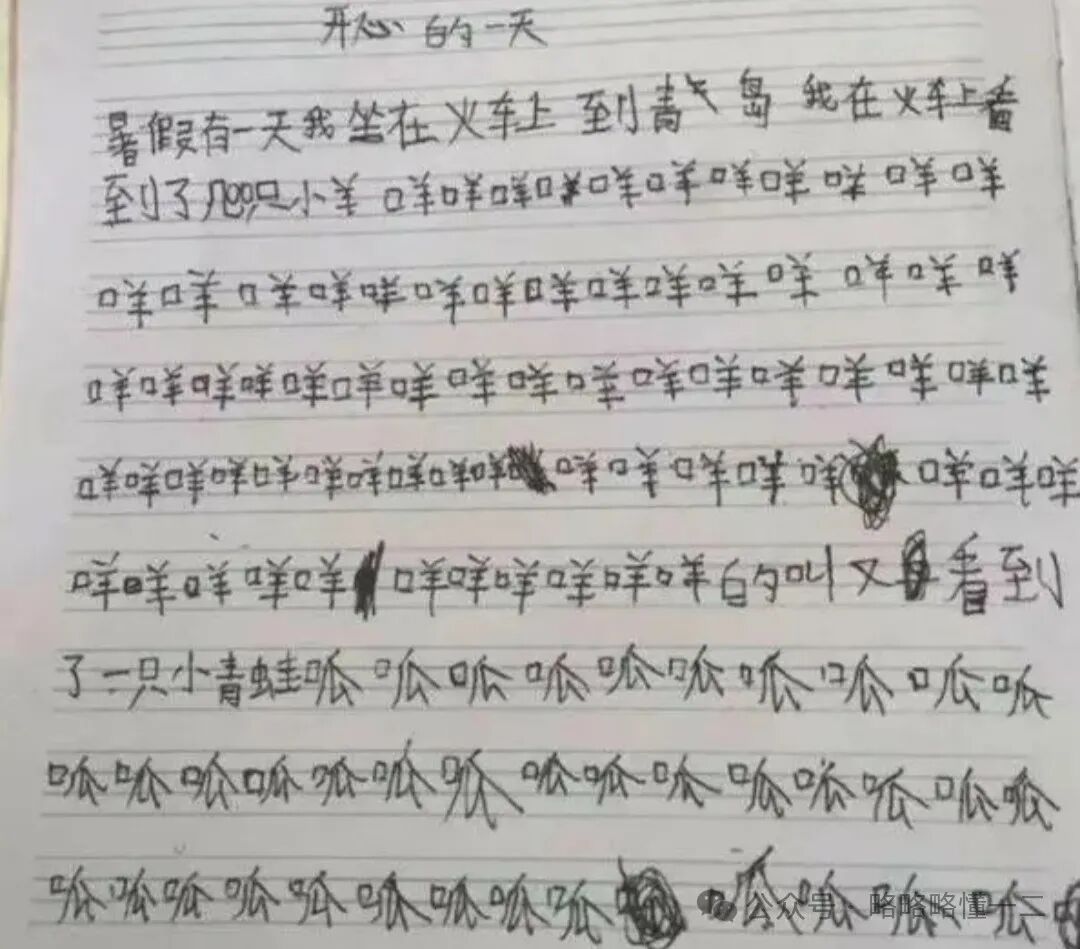 开心的一天
暑假有一天我坐在火车上到青岛我在火车上看
到了几只小羊咩咩咩咩咩咩咩咩咩咩咩
咩咩咩咩咩咩咩咩咩咩咩咩咩咩咩
咩咩咩咩咩咩咩咩咩咩咩咩咩咩咩咩咩
咩咩咩咩咩咩咩咩咩咩咩咩咩咩咩咩咩咩
咩咩咩咩咩咩咩咩咩咩咩的叫又看到
了一只小青蛙呱呱呱呱呱呱呱呱呱呱
呱呱呱呱呱呱呱呱呱呱呱呱呱呱呱
呱呱呱呱呱呱呱呱呱呱呱呱呱
公众号·略略略懂一二